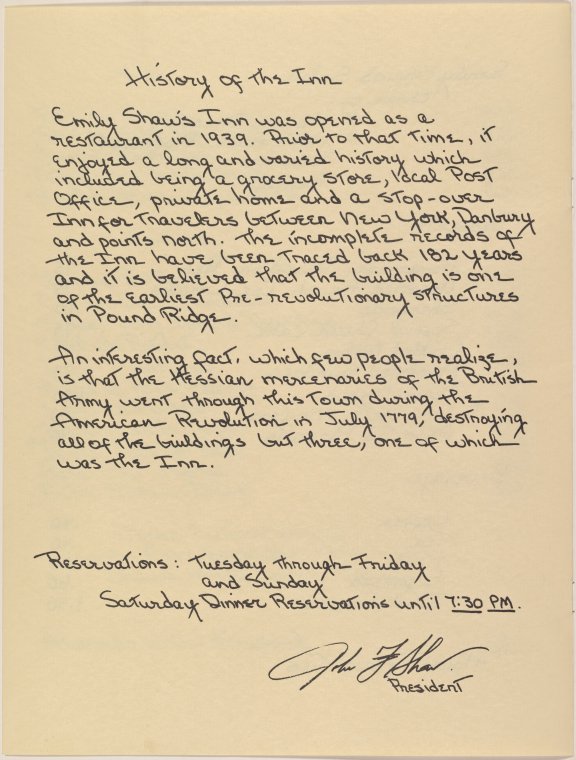 History of the Inn
Emily Shaw's Inn was opened as a
restaurant in 1939. Prior to that time, it
enjoyed a long and varied history which
included being a grocery store, local Post
Office, private home and a stop-over
Inn for travelers between New York, Danbury
and points north. The incomplete records of
the Inn have been traced back 182 years
and it is believed that the building is one
of the earliest Pre-revolutionary structures
in Pound Ridge.
An interesting fact, which few people realize,
is that the Hessian mercenaries of the British
Army went through this town during the
American Revolution in July 1779, destroying
all of the buildings but three, one of which
was the Inn.
Reservations: Tuesday through Friday
and Sunday
Saturday Dinner Reservations until 7:30 PM.
John F Shaw.
President